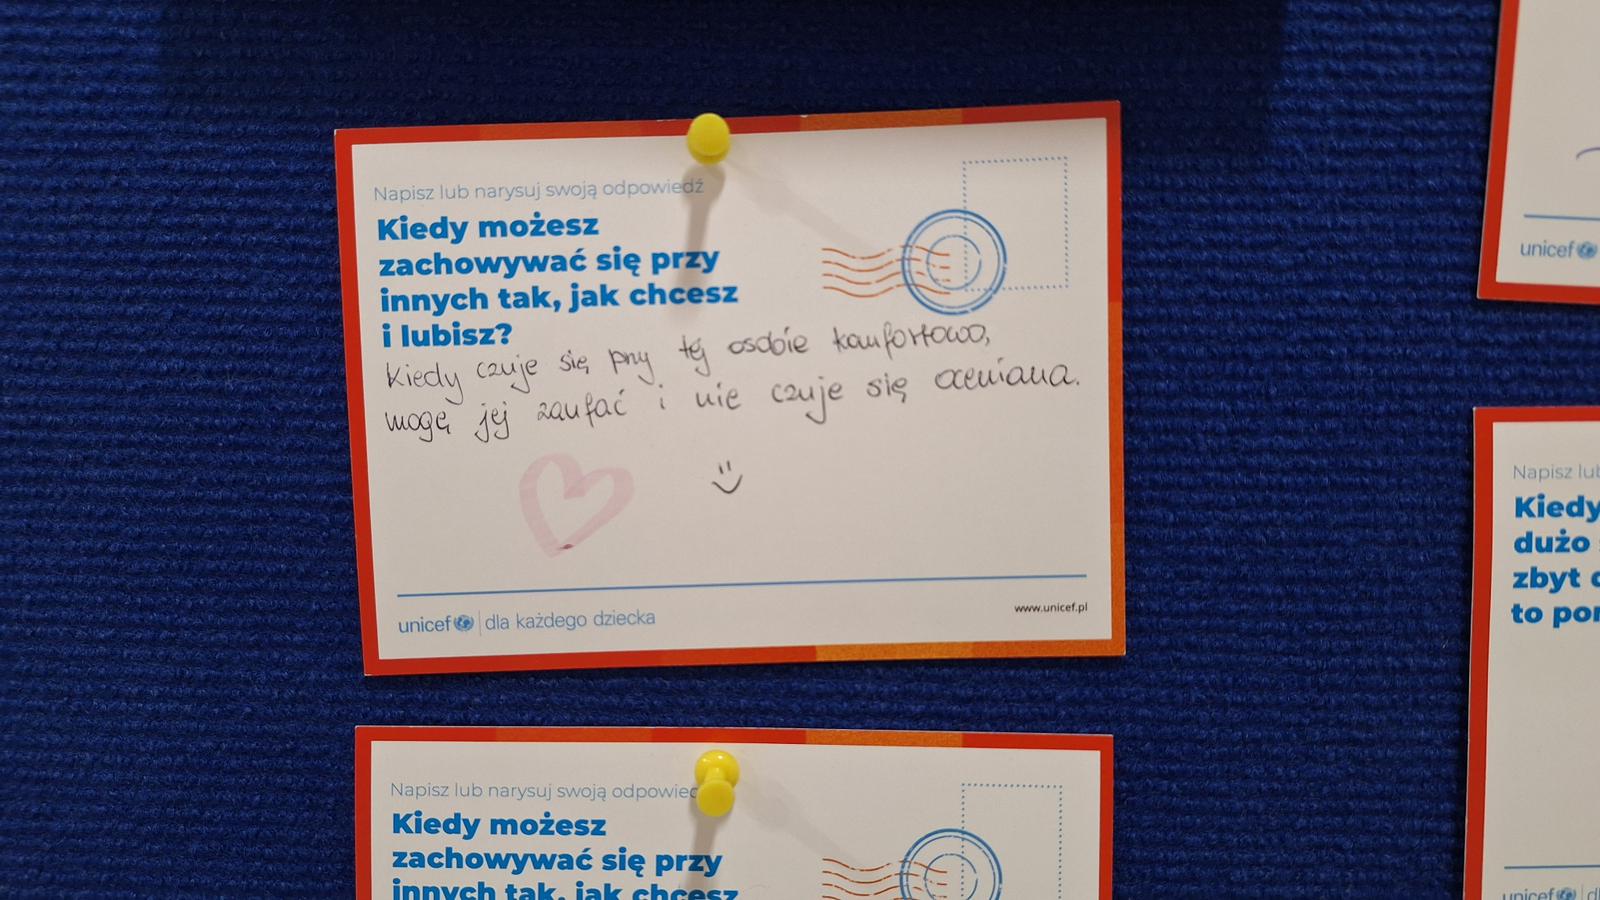 Napisz lub narysuj swoją odpowiedź
Kiedy możesz
zachowywać się przy
innych tak, jak chcesz
i lubisz?
Kiedy czuje się przy tej osobie komfortowo,
mogę jej zaufać i nie czuje się oceniana.
unicef dla każdego dziecka
www.unicef.pl
Napisz lub narysuj swoją odpowied
Kiedy możesz
zachowywać się przy
innych tak, jak chcesz
unicef
Napisz lub
Kiedy
dużo
zbyt
to
unicef